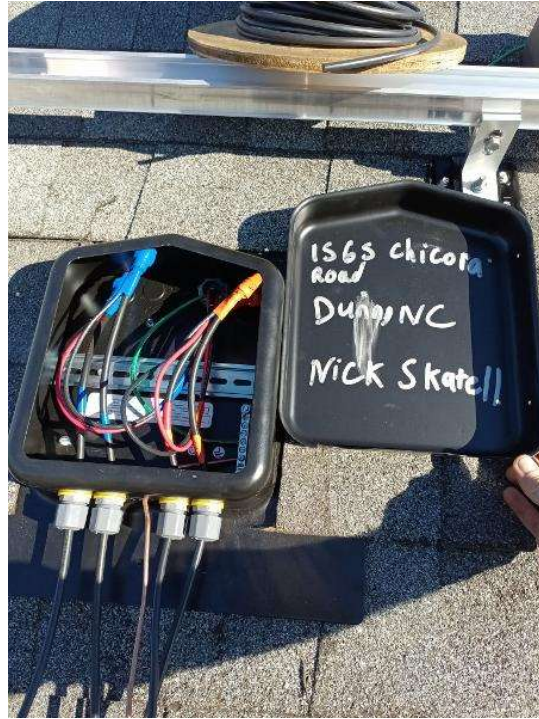 1565 Chicora
Road
Dunn, NC
Nick Skatell